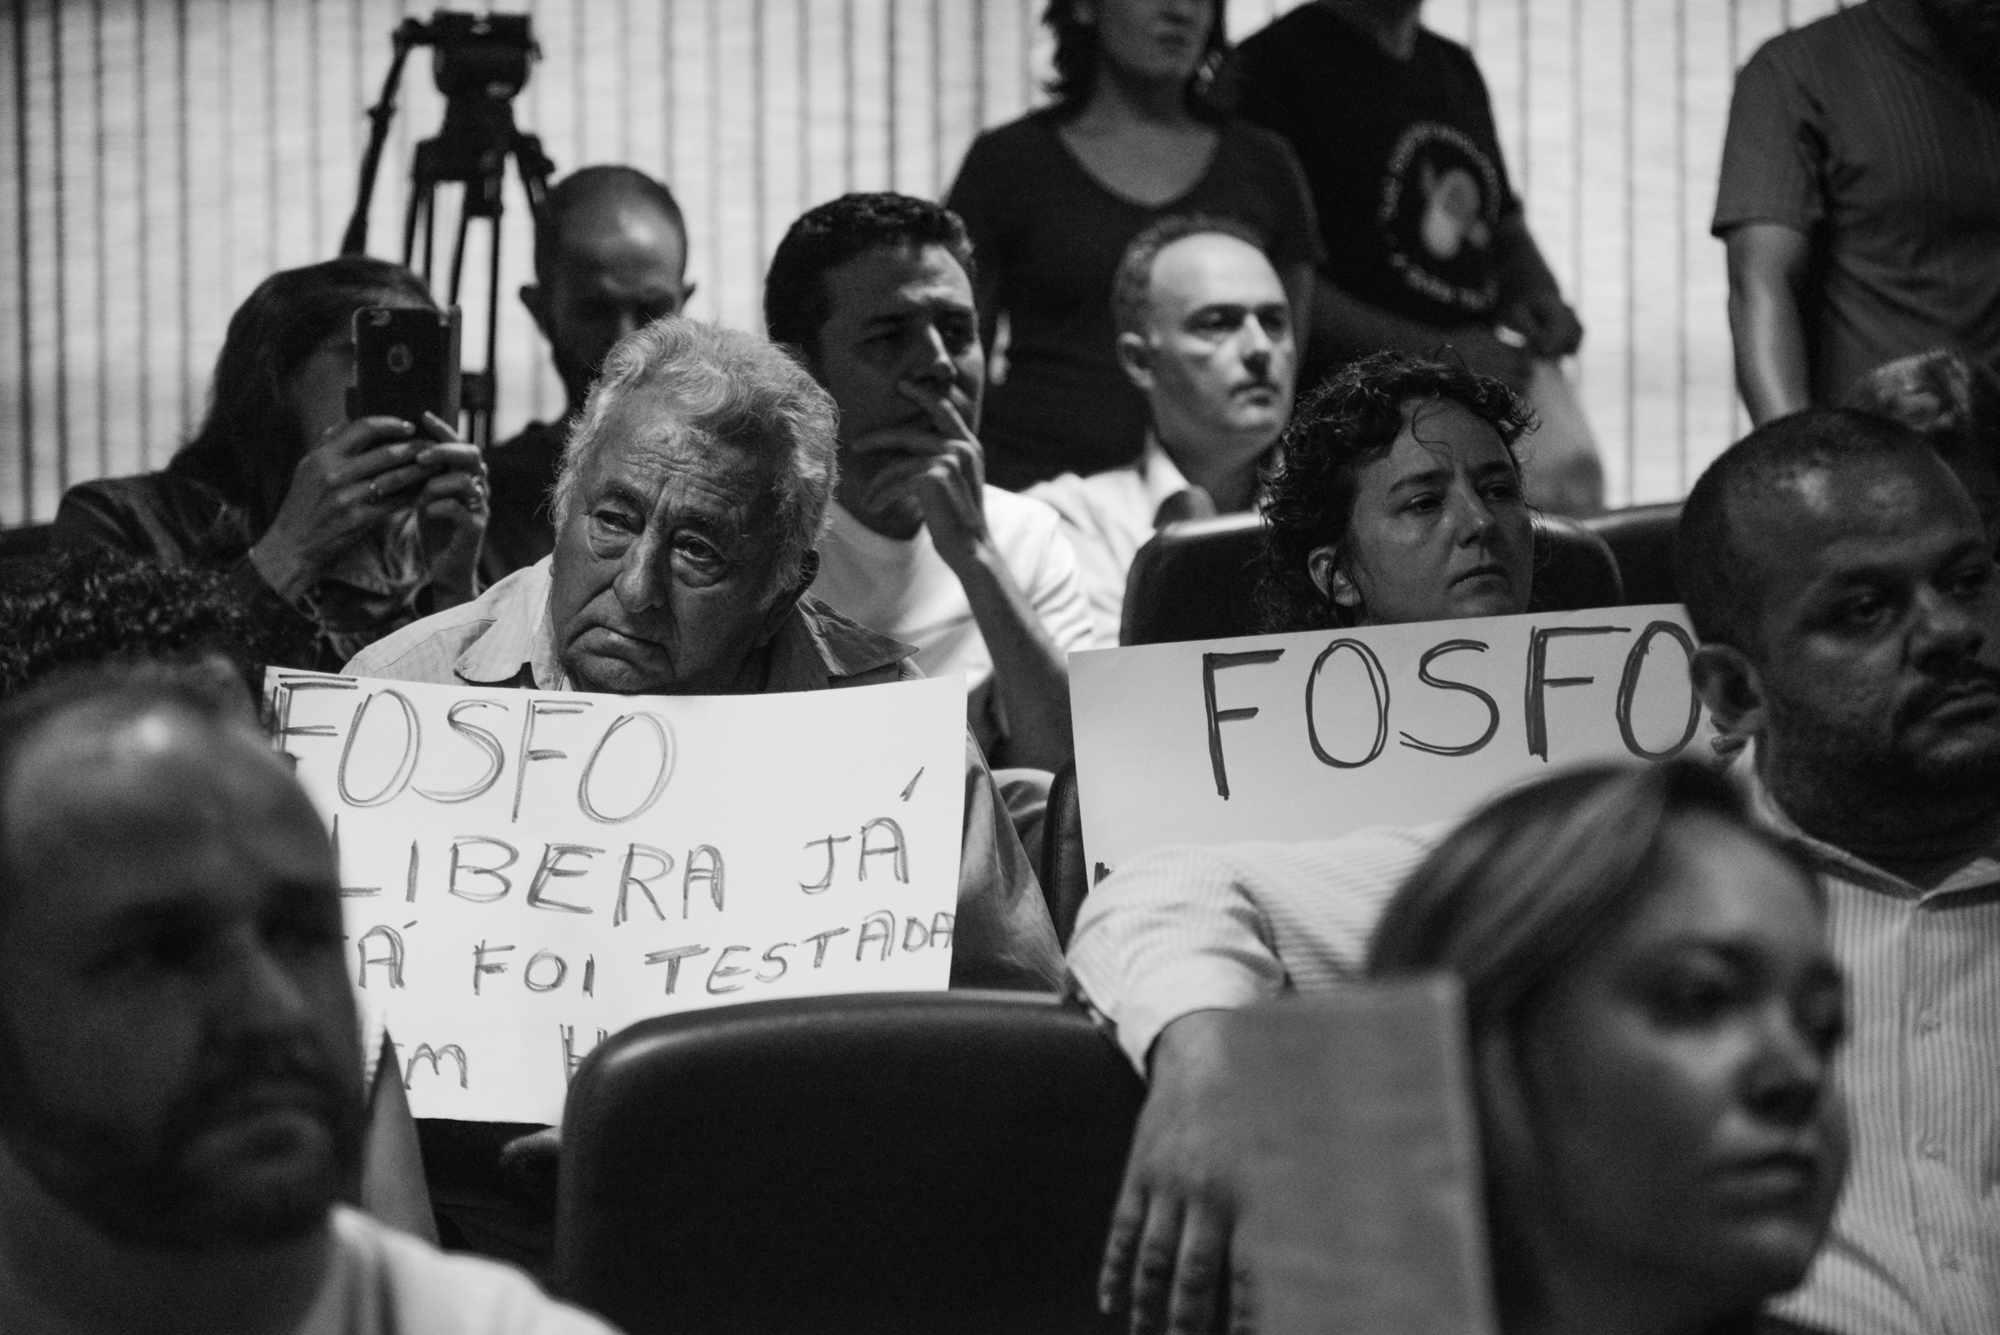 FOSFO
LIBERA JÁ
JÁ FOI TESTADA
EM
FOSFO